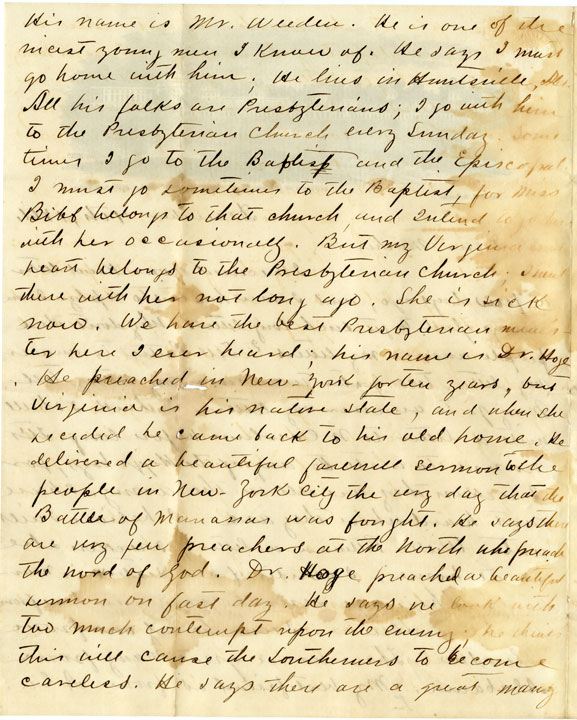 His name is Mr. Weeden. He is one of the
nicest young men I know of. He says I must
go home with him; He lives in Huntsville,
All his folks are Presbyterians; I go with him
to the Presbyterian Church every Sunday. Some
times I go to the Baptist and the Episcopal.
I must go sometimes to the Baptist, for Miss
Bibb belongs to that church, and I
with her occasionally. But my Virginia
heart belongs to the Presbyterian Church. I
there with her not long ago. She is sick
now. We have the best Presbyterian minis
ter here I ever heard; his name is Dr. Hoge
. He preached in New-York for ten years, but
Virginia is his native state, and when she
seceded he came back to his old home. He
delivered a beautiful farewell sermon to the
people in New-York City the very day that the
Battle of Manassas was fought. He says there
are very few preachers at the North who preach
the word of God. Dr. Hoge preached a beautiful
sermon on fast day. He says we look with
too much contempt upon the enemy; he thinks
this will cause the Southerners to become
careless. He says there are a great many